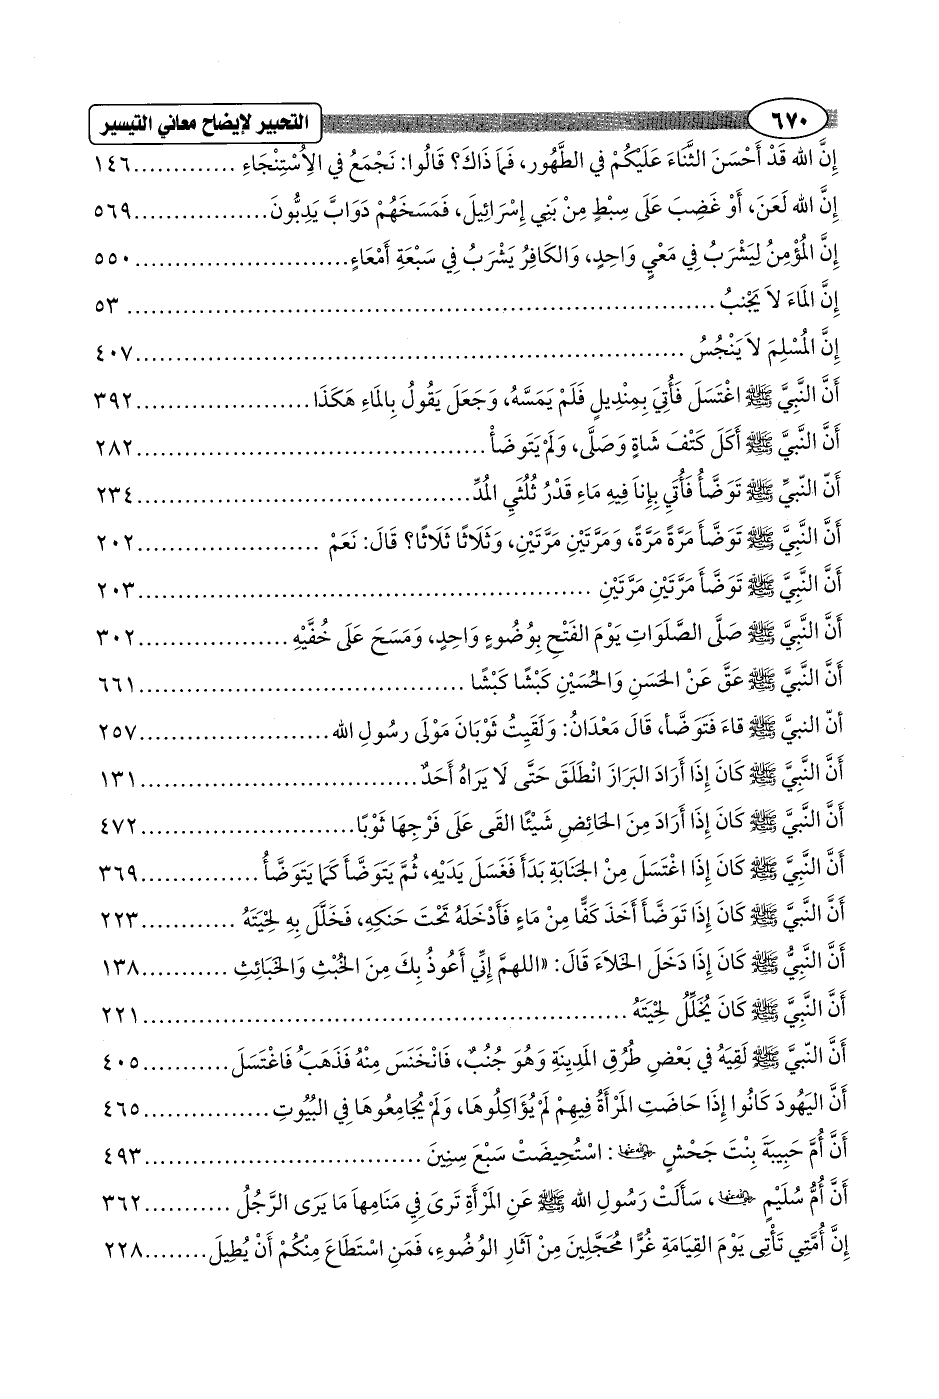 ٦٧٠ التحبير لإيضاح معاني التيسير
إِنَّ الله قَدْ أَحْسَنَ الثَّنَاءَ عَلَيكُمْ فِي الطَّهُورِ، فَمَا ذَاكَ؟ قَالُوا: نَجْمَعُ فِي الِاْسْتِنْجَاءِ ............. ١٤٦
إِنَّ الله لَعَنَ، أَوْ غَضِبَ عَلَى سِبْطٍ مِنْ بَنِي إِسْرَائِيلَ، فَمَسَخَهُمْ دَوَابَّ يَدِبُّونَ................. ٥٦٩
إِنَّ المُؤْمِنُ لِيَشْرَبُ فِي مَعْيٍ وَاحِدٍ، وَالكَافِرُ يَشْرَبُ فِي سَبْعَةِ أَمْعَاءٍ........................... ٥٥٠
إِنَّ المَاءَ لاَ يَجْنبُ ........................................................................ ٥٣
إِنَّ المُسْلِمَ لاَ يَنْجُسُ ........................................................................ ٤٠٧
أَنَّ النَّبِيَّ ﷺ اغْتَسَلَ فَأُتِيَ بِمِنْدِيلٍ فَلَمْ يَمَسَّهُ، وَجَعَلَ يَقُولُ بِالمَاءِ هَكَذَا ...................... ٣٩٢
أَنَّ النَّبِيَّ ﷺ أَكَلَ كَتْفَ شَاةٍ وَصَلَّى، وَلَمْ يَتَوَضَأْ............................................ ٢٨٢
أَنّ النّبيِّ ﷺ تَوَضَّأُ فَأُتي بِإِناَ فِيهِ مَاءِ قَدْرُ ثُلُثَيِ المُدِّ.......................................... ٢٣٤
أَنَّ النَّبِيَّ ﷺ تَوَضَّأَ مَرَّةً مَرَّةً، وَمَرَّتَيْنِ مَرَّتَيْنِ، وَثَلَاثًا ثَلَاثًا؟ قَالَ: نَعَمْ ....................... ٢٠٢
أَنَّ النَّبِيَّ ﷺ تَوَضَّأَ مَرَّتَيْنِ مَرَّتَيْنِ ......................................................... ٢٠٣
أَنَّ النَّبِيَّ ﷺ صَلَّى الصَّلَوَاتِ يَوْمَ الفَتْحِ بِوُضُوءٍ وَاحِدٍ، وَمَسَحَ عَلَى خُفَّيْهِ................... ٣٠٢
أَنَّ النَّبِيَّ ﷺ عَقَّ عَنْ الحَسَنِ وَالحُسَيْنِ كَبْشًا كَبْشًا ......................................... ٦٦١
أنّ النبيَّ ﷺ قاءَ فَتَوَضَّأ، قَالَ مَعْدَانُ: وَلَقَيِتُ ثَوْبَانَ مَوْلَى رسُولِ الله........................ ٢٥٧
أَنَّ النَّبِيَّ ﷺ كَانَ إِذَا أَرَادَ البَرَازَ انْطَلَقَ حَتَّى لَا يَرَاهُ أَحَدٌ................................... ١٣١
أَنَّ النَّبِيَّ ﷺ كَانَ إِذَا أَرَادَ مِنَ الحَائِضِ شَيْئًا القَى عَلَى فَرْجِهَا ثَوْبًا........................... ٤٧٢
أَنَّ النَّبِيَّ ﷺ كَانَ إِذَا اغْتَسَلَ مِنْ الجَنَابَةِ بَدَأَ فَغَسَلَ يَدَيْهِ، ثُمَّ يَتَوَضَّأَ كَمَا يَتَوَضَّأُ............... ٣٦٩
أَنَّ النَّبِيَّ ﷺ كَانَ إِذَا تَوَضَّأَ أَخَذَ كَفًّا مِنْ مَاءٍ فَأَدْخَلَهُ تَحْتَ حَنَكِهِ، فَخَلَّلَ بِهِ لِحْيَتَهُ ............ ٢٢٣
أَنَّ النَّبِيُّ ﷺ كَانَ إِذَا دَخَلَ الخَلاَءَ قَالَ: «اللهمَّ إِنِّي أَعُوذُ بِكَ مِنَ الخُبْثِ وَالخَبَائِثِ ........... ١٣٨
أَنَّ النَّبِيَّ ﷺ كَانَ يُخَلِّلُ لِحْيَتَهُ ............................................................. ٢٢١
أَنَّ النّبيَّ ﷺ لَقِيَهُ فِي بَعْضِ طُرُقِ المَدِينَةِ وَهُوَ جُنُبٌ، فَانْخَنَسَ مِنْهُ فَذَهَبُ فَاغْتَسَلَ............ ٤٠٥
أَنَّ اليَهُودَ كَانُوا إِذَا حَاضَتِ المَرْأَةُ فِيهِمْ لَمْ يُؤَاكِلُوهَا، وَلَمْ يُجَامِعُوهَا فِي البُيُوتِ................. ٤٦٥
أَنَّ أُمَّ حَبِيبَةَ بِنْتَ جَحْشٍ رضي الله عنها: اسْتُحِيضَتْ سَبْعَ سِنِينَ ................................... ٤٩٣
أَنَّ أُمُّ سُلَيْمٍ رضي الله عنها، سَأَلَتْ رَسُولِ الله ﷺ عَنِ المَرْأَةِ تَرىَ فِي مَنَامِهاَ مَا يَرَى الرَّجُلُ ........... ٣٦٢
إِنَّ أُمَّتِي تَأْتِى يَوْمَ القِيَامَةِ غُرًّا مُحَجَّلِينَ مِنْ آثَارِ الوُضُوءِ، فَمَنِ اسْتَطَاعَ مِنْكُمْ أَنْ يُطِيلَ........ ٢٢٨